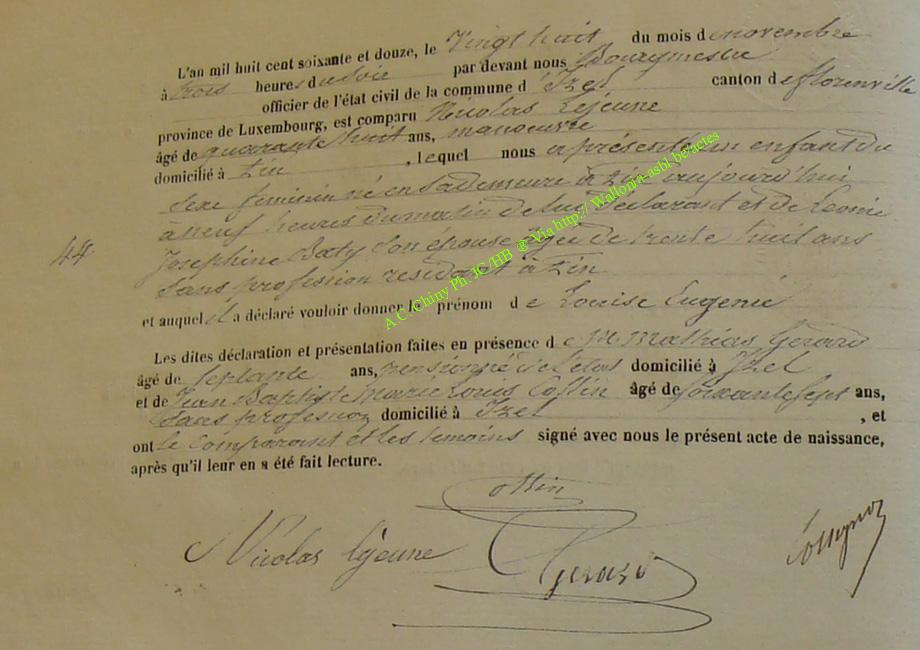 L'an mil huit cent soixante et douze, le Vingt huit du mois de novembre
à trois heures du soir par devant nous Bourgmestre
officier de l'état civil de la commune d'Izel canton de florenville
province de Luxembourg, est comparu Nicolas Lejeune
âgé de quarante huit ans, manoeuvre
domicilié à Pin, lequel nous a présenté un enfant du
sexe féminin né en sa demeure à Pin aujourd'hui
à neuf heures du matin de lui déclarant et de Leonie
Josephine Baty son épouse agée de trente huit ans
sans profession residant à Pin
44
et auquel il a déclaré vouloir donner le prénom de Louise Eugenie
Les dites déclaration et présentation faites en présence de M Mathias Gerard
âgé de septante ans, pensionné de l'état domicilié à Izel
et de Jean Baptiste Marie Louis Collin âgé de soixante sept ans,
sans profession domicilié à Izel, et
ont le comparant et les temoins signé avec nous le présent acte de naissance,
après qu'il leur en a été fait lecture.
Nicolas Lejeune
Gerard
A C /Chiny Ph. JC/HB @ Via http:// Wallonia-asbl.be/actes